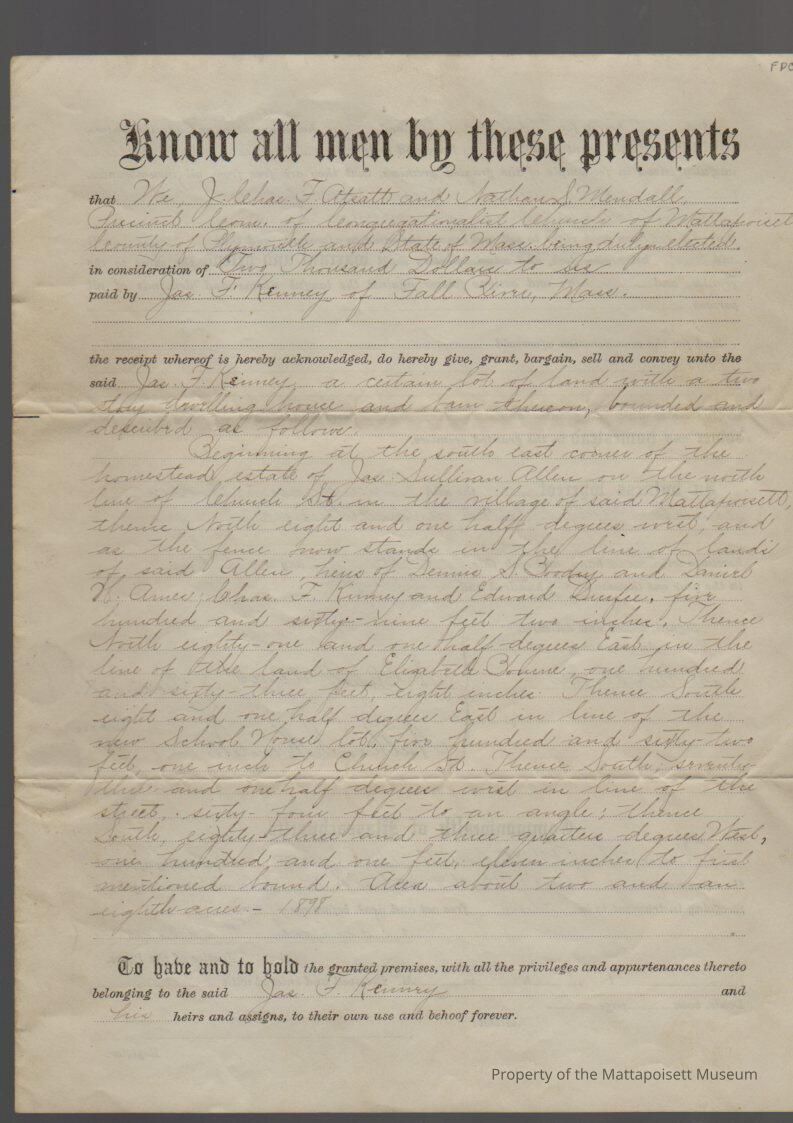 FDC
Know all men by these presents
that We, J. Chas. F. Atsatt and Nathan S. Mendall,
Precinct Com. of Congregationalist Church of Mattapoisett
County of Plymouth and State of Mass. being duly elected,
in consideration of Two Thousand Dollars to us
paid by Jas. F. Kenney of Fall River, Mass.
the receipt whereof is hereby acknowledged, do hereby give, grant, bargain, sell and convey unto the
said Jas. F. Kenney, a certain lot of land with a two
story dwelling house and barn thereon, bounded and
described as follows.
Beginning at the south east corner of the
homestead estate of Jas. Sullivan Allen on the north
line of Church St. in the village of said Mattapoisett,
thence North eight and one half degrees west, and
as the fence now stands in the line of lands
of said Allen, heirs of Dennis S. and Daniel
W. Ames, Chas. F. Kinney and Edward Durfee, five
hundred and sixty-nine feet two inches. Thence
North eighty-one and one half degrees East in the
line of the land of Elizabeth Bourne, one hundred
and sixty-three feet, eight inches. Thence South
eight and one half degrees East in line of the
new School House lot, five hundred and sixty-two
feet, one inch to Church St. Thence South, seventy-
three and one half degrees west in line of the
street, sixty-four feet to an angle; thence
South, eighty-three and three quarters degrees West,
one hundred and one feet, eleven inches to first
mentioned bound. Area about two and one
eighth acres. - 1898
To have and to hold the granted premises, with all the privileges and appurtenances thereto
belonging to the said Jas. F. Kenney and
his heirs and assigns, to their own use and behoof forever.
Property of the Mattapoisett Museum